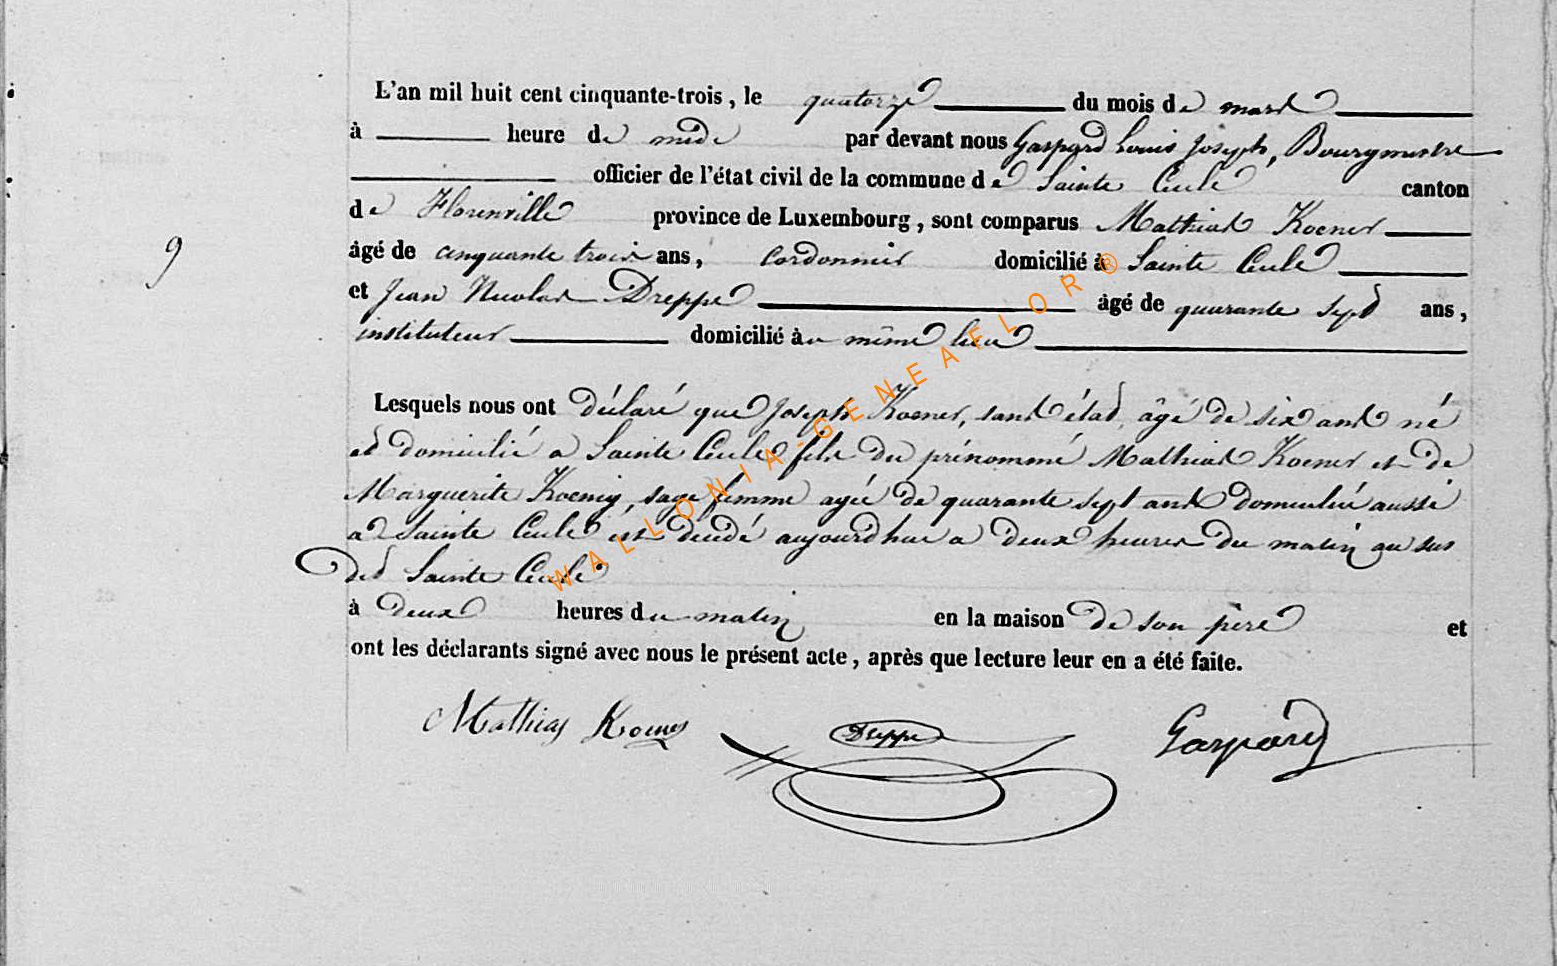 L'an mil huit cent cinquante-trois, le quatorze du mois de mars
à heure de midi par devant nous Gaspard Louis Joseph, Bourgmestre
officier de l'état civil de la commune de Sainte Cecile canton
de Florenville province de Luxembourg, sont comparus Mathias Koener
âgé de cinquante trois ans, cordonnier domicilié à Sainte Cecile
9
et Jean Nicolas Dreppe âgé de quarante sept ans,
instituteur domicilié au même lieu
Lesquels nous ont déclaré que Joseph Koener, sans état, âgé de six ans né
et domicilié a Sainte Cecile fils du prénommé Mathias Koener et de
Marguerite Koenig, sage femme agée de quarante sept ans domiciliée aussi
a Sainte Cecile est décédé aujourd'hui a deux heures du matin au sus
dit Sainte Cecile
à deux heures du matin en la maison de son père et
ont les déclarants signé avec nous le présent acte, après que lecture leur en a été faite.
Mathias Koener Dreppe Gaspard
WALLONIA-GENEAFLOR®